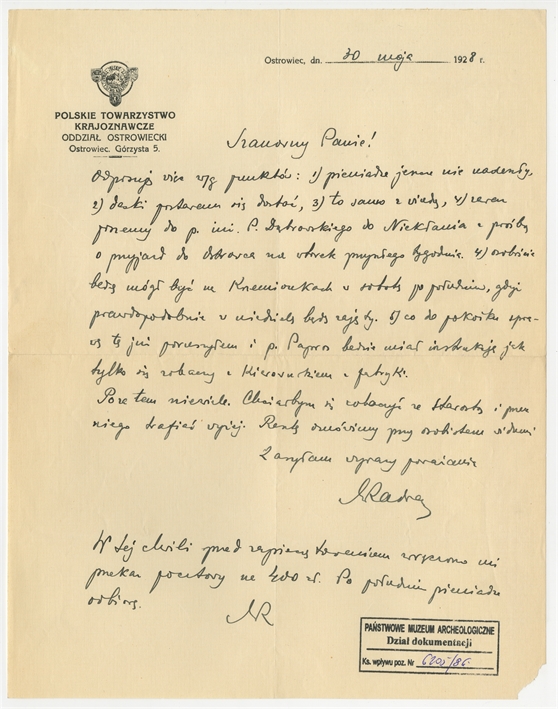 Ostrowiec, dn. 30 maja 1928 r.
POLSKIE TOWARZYSTWO
KRAJOZNAWCZE
ODDZIAŁ OSTROWIECKI
Ostrowiec, Górzysta 5.
Szanowny Panie!
Odpisuję więc wg punktów: 1) pieniądze jeszcze nie nadeszły,
2) deski postaram się dostać, 3) to samo z wiedzą, 4) zaraz
piszemy do p. inż. P. Dąbrowskiego do Niekłania z prośbą
o przyjazd do Ostrowca na wtorek przyszłego tygodnia. 4) osobiście
będę mógł być na Krzemionkach w sobotę po południu, gdyż
prawdopodobnie w niedzielę będę zajęty. 5) co do pokoiku spra-
wę tę już poruszyłem i p. będzie miał instrukcję jak
tylko się zobaczy z Kierownikiem z fabryki.
Poza tem niewiele. Chciałbym się zobaczyć ze Starostą i przez
niego trafiać wyżej. Resztę omówimy przy osobistem widzeniu
Zasyłam wyrazy poważania
MRadwan
W tej chwili przed zapieczętowaniem wręczono mi
przekaz pocztowy na 400 zł. Po południu pieniądze
odbiorę.
MR
PAŃSTWOWE MUZEUM ARCHEOLOGICZNE
Dział dokumentacji
Ks. wpływu poz. Nr